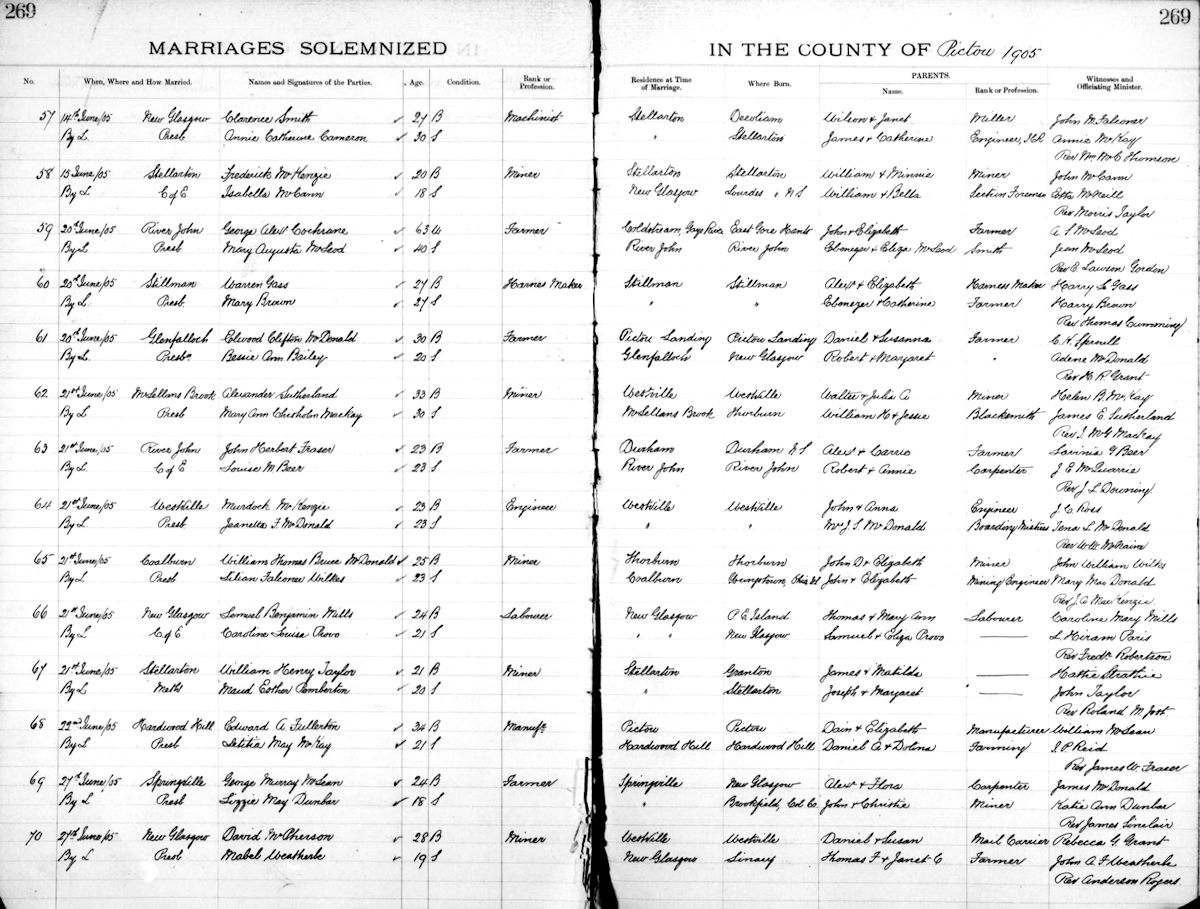 269
269
MARRIAGES SOLEMNIZED IN THE COUNTY OF Pictou 1905
No. When, Where and How Married. Names and Signatures of the Parties. Age. Condition. Rank or Profession. Residence at Time of Marriage. Where Born. PARENTS. Name. Rank or Profession. Witnesses and Officiating Minister.
57 14th June/05 New Glasgow Clarence Smith 27 B Machinist Stellarton Wilson & Janet Miller John M Falconer
By L. Presb. Annie Catherine Cameron 30 S " Stellarton James & Catherine Engineer, ICR Annie McKay
Rev Wm McC Thomson
58 15 June/05 Stellarton Frederick McKenzie 20 B Miner Stellarton Stellarton William & Minnie Miner John McCann
By L C of E Isabella McCann 18 S New Glasgow Lourdes " N S William & Bella Section Foreman Etta McNeill
Rev Morris Taylor
59 20th June/05 River John George Alexr Cochrane 63 W Farmer Coldstream, Gays River East Gore Hants John & Elizabeth Farmer A S McLeod
By L Presb Mary Augusta McLeod 40 S River John River John Ebenezer & Eliza McLeod Smith Jean McLeod
Rev E. Lawson Gordon
60 20th June/05 Stillman Warren Gass 27 B Harnes Maker Stillman Stillman Alexr & Elizabeth Harness Maker Harry L Gass
By L. Presb. Mary Brown 27 S " " Ebenezer & Catherine Farmer Harry Brown
Rev Thomas Cumming
61 20th June/05 Glenfalloch Elwood Clifton McDonald 30 B Farmer Pictou Landing Pictou Landing Daniel & Susanna Farmer C. H. Sproull
By L. Presbn Bessie Ann Bailey 20 S Glenfalloch New Glasgow Robert & Margaret " Adene McDonald
Rev H R Grant
62 21st June/05 McLellans Brook Alexander Sutherland 33 B Miner Westville Westville Walter & Julia A Miner Helen B. McKay
By L Presb Mary Ann Chisholm Mackay 30 S McLellans Brook Thorburn William H & Jessie Blacksmith James E Sutherland
Rev J. McG MacKay
63 21st June/05 River John John Herbert Fraser 23 B Farmer Durham Durham N S Alexr & Carrie Farmer Lavinia G Beer
By L. C of E Louise M Beer 23 S River John River John Robert & Annie Carpenter J E McQuarrie
Rev J L Downing
64 21st June/05 Westville Murdoch McKenzie 23 B Engineer Westville Westville John & Anna Engineer J. C Ross
By L Presb Jeanetta F McDonald 23 S " " Mr J. S. McDonald Boarding Mistress Tena L McDonald
Rev W W McNairn
65 21st June/05 Coalburn William Thomas Bruce McDonald 25 B Miner Thorburn Thorburn John D & Elizabeth Miner John William Wilks
By L. Presb Lilian Falconer Wilkes 23 S Coalburn John & Elizabeth Mining Engineer Mary MacDonald
Rev J. A MacKenzie
66 21st June/05 New Glasgow Lemuel Benjamin Mills 24 B Labourer New Glasgow P. E Island Thomas & Mary Ann Labourer Caroline Mary Mills
By L C of E Caroline Louisa Provo 21 S " " New Glasgow Samuel & Eliza Provo L Hiram Paris
Rev Fredk. Robertson
67 21st June/05 Stellarton William Henry Taylor 21 B Miner Stellarton Granton James & Matilda Hattie Strathie
By L Meth Maud Esther Pemberton 20 S " Stellarton Joseph & Margaret John Taylor
Rev Roland M Jost
68 22nd June/05 Hardwood Hill Edward A Fullerton 34 B Manufr Pictou Pictou Dain & Elizabeth Manufacturer William McLean
By L Presb Letitia May McKay 21 S Hardwood Hill Hardwood Hill Daniel A & Dolina Farming J. P Reid
Rev James W. Fraser
69 27th June/05 Springville George Murray McLean 24 B Farmer Springville New Glasgow Alexr & Flora Carpenter James McDonald
By L Presb Lizzie May Dunbar 18 S " Brookfield, Col Co. John & Christie Miner Katie Ann Dunbar
Rev James Sinclair
70 27th June/05 New Glasgow David McPherson 28 B Miner Westville Westville Daniel & Susan Mail Carrier Rebecca G. Grant
By L Presb Mabel Weatherbe 19 S New Glasgow Thomas F & Janet C Farmer John A F Weatherbe
Rev Anderson Rogers